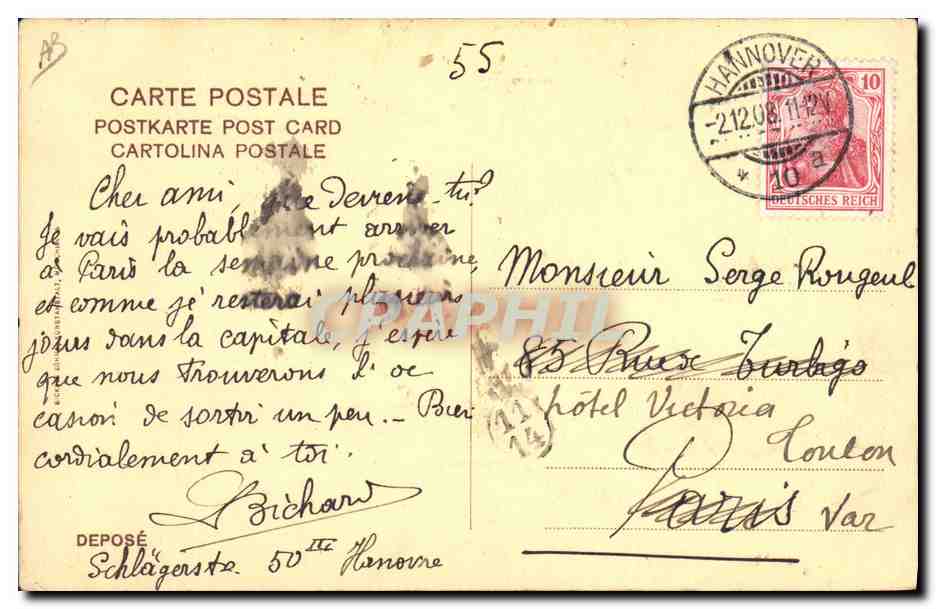 AB
55
CARTE POSTALE
POSTKARTE POST CARD
CARTOLINA POSTALE
HANNOVER
-2.12.08. 11-12V.
* 10 a
10
DEUTSCHES REICH
Cher ami, que deviens-tu?
Je vais probablement arriver
à Paris la semaine prochaine,
et comme je resterai plusieurs
jours dans la capitale, j'espère
que nous trouverons l'oc
casion de sortir un peu. – Bien
cordialement à toi.
Bichard
DEPOSÉ
Schlägerstr. 50 III Hanovre
Monsieur Serge Rougeul
85 Rue de Turbigo
hôtel Victoria
Toulon
Paris Var
11
14
CPAPHIL